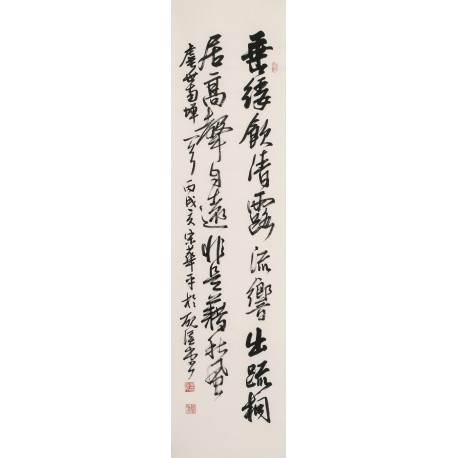 垂緌飲清露流響出疏桐
居高聲自遠非是藉秋風
虞世南蟬一首丙戌亥宋華平於